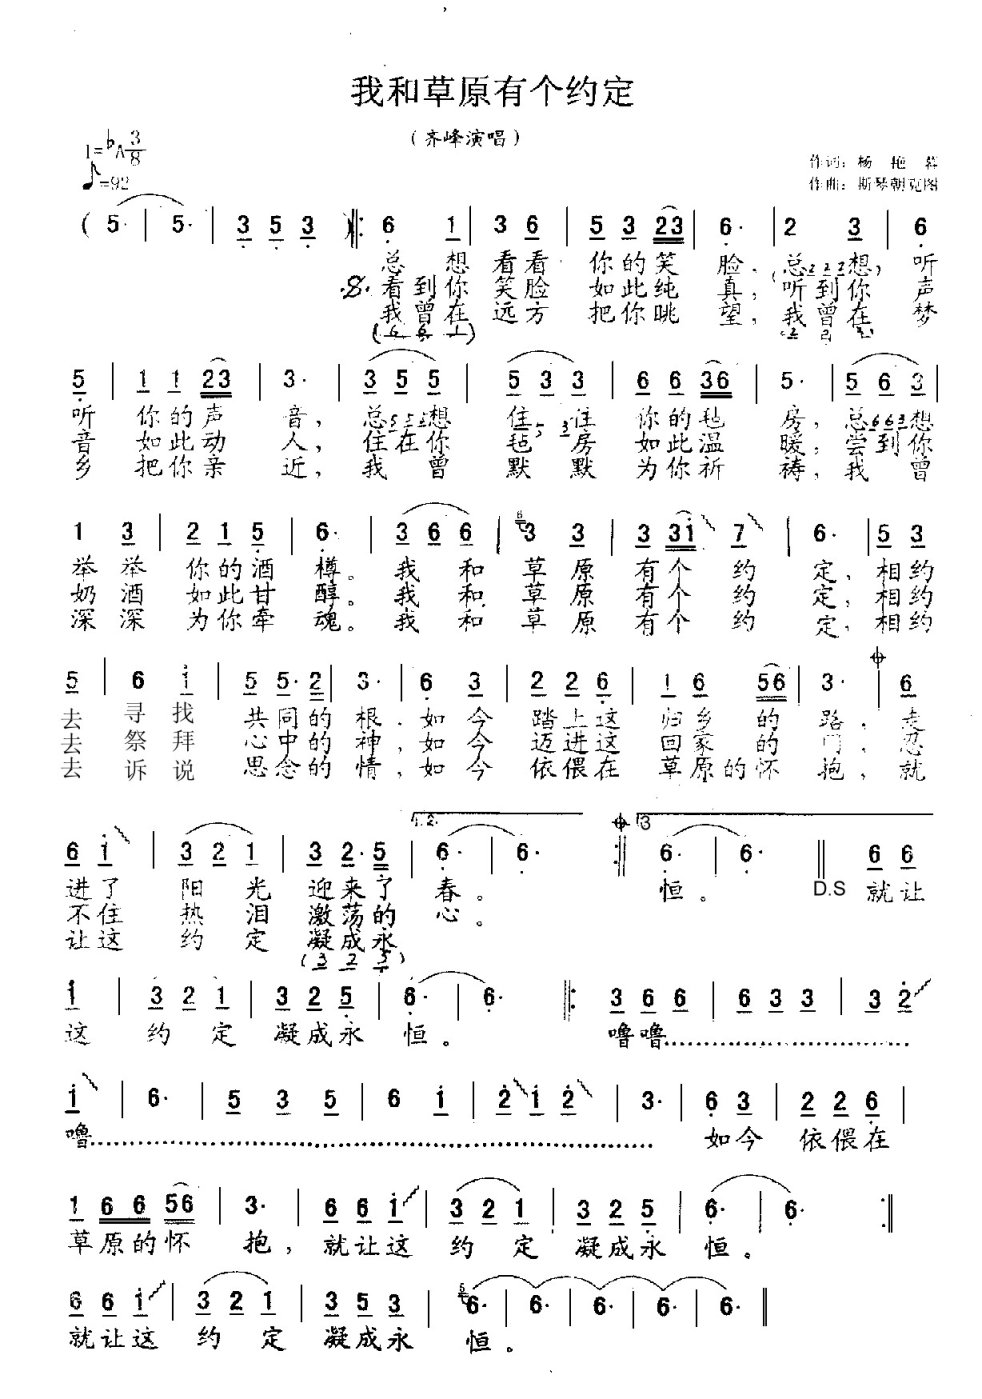 我和草原有个约定
（齐峰演唱）
1=♭A 3/8
♪=92
作词：杨 艳 蕗
作曲：斯琴朝克图
( 5· | 5· | 3 5 3 ) ‖: 6 1 | 3 6 | 5 3 23 | 6· | 2 3 | 6
总 想 看看 你的笑 脸，总 想 听
看到你 笑脸 如此纯 真，听到你 声
我曾在 远方 把你眺 望，我曾在 梦
5 | 1 1 23 | 3· | 3 5 5 | 5 3 3 | 6 6 36 | 5· | 5 6 3 |
听 你的声 音，总 想 住 住 你的毡 房，总 想
音 如此动 人，住在你 毡 房 如此温 暖，尝到你
乡 把你亲 近，我 曾 默 默 为你祈 祷，我 曾
1 3 | 2 1 5 | 6· | 3 6 6 | 3 3 | 3 3i 7 | 6· | 5 3
举 举 你的酒 樽。我 和 草 原 有个 约 定，相约
奶 酒 如此甘 醇。我 和 草 原 有个 约 定，相约
深 深 为你牵 魂。我 和 草 原 有个 约 定，相约
5 | 6 i | 5 5· 2 | 3· | 6 3 | 2 2 6 | 1 6 56 | 3· | 6
去 寻 找 共同的 根，如 今 踏上这 归乡 的 路，走
去 祭 拜 心中的 神，如 今 迈进这 回家 的 门，忍
去 诉 说 思念的 情，如 今 依偎在 草原的怀 抱，就
1.2. 3
6 i | 3 2 1 | 3 2· 5 | 6· | 6· :‖ 6· | 6· ‖ 6 6
进了 阳 光 迎来了 春。 恒。 D.S 就让
不住 热 泪 激荡的 心。
让这 约 定 凝成永
(3 2 5)
i | 3 2 1 | 3 2 5 | 6· | 6· ‖: 3 6 6 | 6 3 3 | 3 2
这 约 定 凝成永 恒。 噜噜……………………
i | 6· | 5 3 5 | 6 i | 2 i 2 | 3· | 6 3 | 2 2 6 |
噜…………………………………… 如今 依偎在
1 6 6 56 | 3· | 6 6 i | 3 2 1 | 3 2 5 | 6· | 6· :‖
草原的怀 抱，就让这 约 定 凝成永 恒。
6 6 i | 3 2 1 | 3 5 3 | 6· | 6· | 6· | 6· | 6· ‖
就让这 约 定 凝成永 恒。